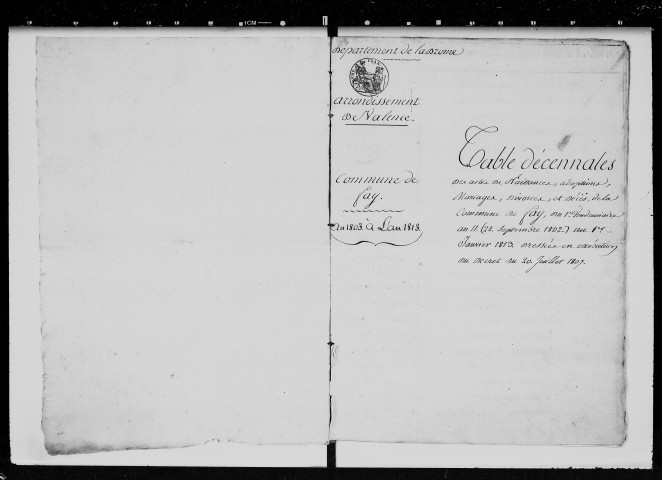 Département de la Drome
Arrondissement
De Valence.
Commune de
fay.
du 1803 à L'an 1813.
Table décennales
Des actes de Naissances, adoptions,
Mariages, divorces, et Décès, de la
Commune de fay, du 1er Vendemiaire
an 11. (23. Septembre 1802.) au 1er
Janvier 1813. Dressée en exécution
du Décret du 20. Juillet 1807.